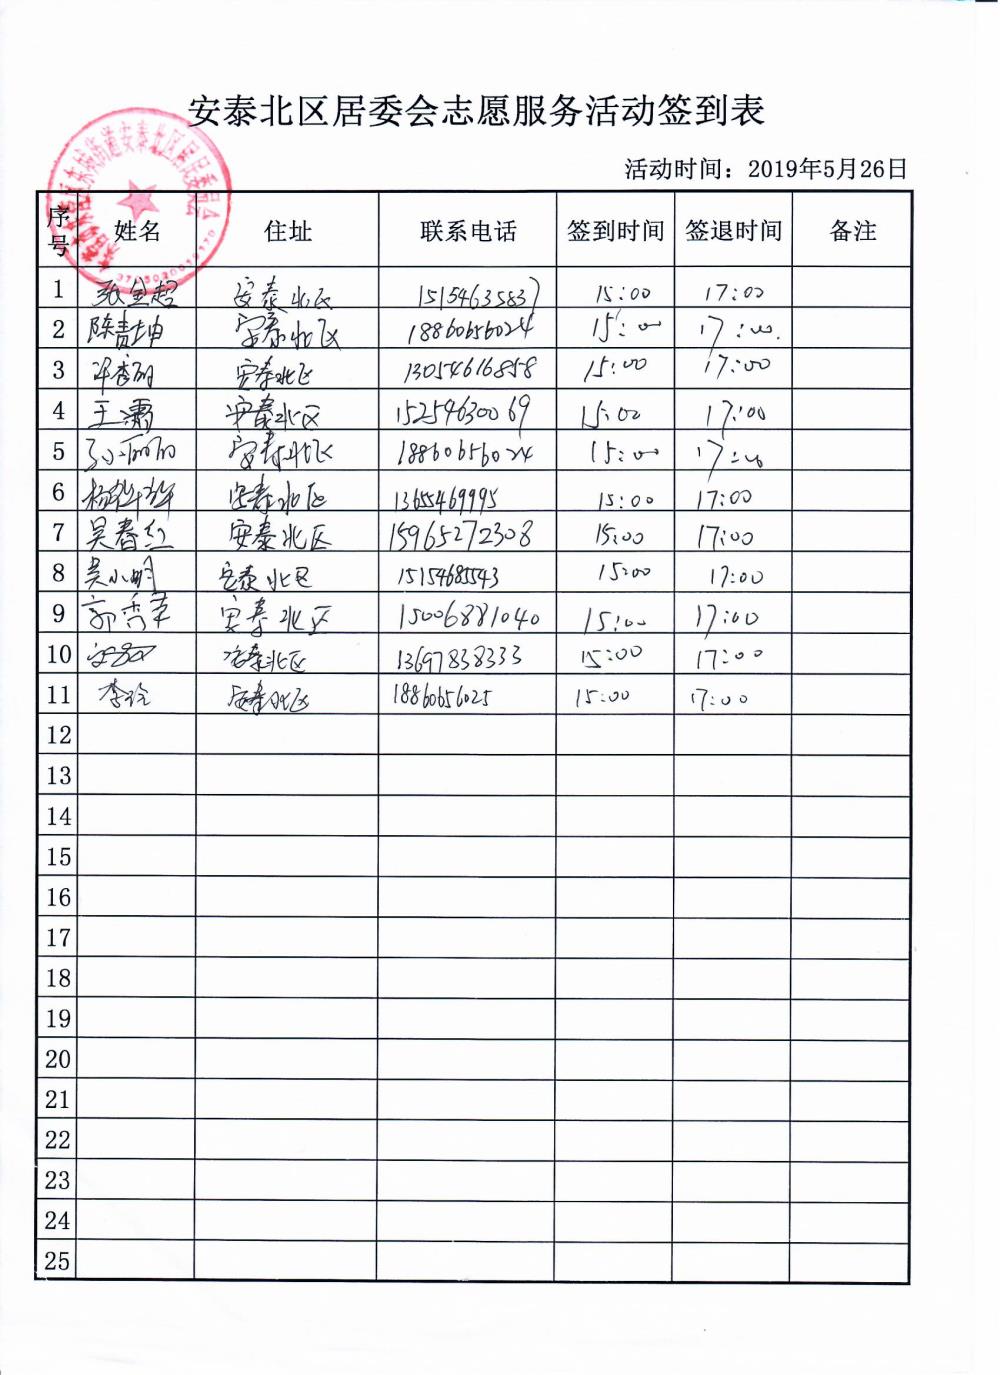 安泰北区居委会志愿服务活动签到表
活动时间：2019年5月26日
序号 姓名 住址 联系电话 签到时间 签退时间 备注
1 张金超 安泰北区 15154635837 15:00 17:00
2 陈青坤 安泰北区 18860656024 15:00 17:00
3 安泰北区 13054616858 15:00 17:00
4 王潇 安泰北区 15254630069 15:00 17:00
5 安泰北区 18860656024 15:00 17:00
6 安泰北区 13655469995 15:00 17:00
7 吴春红 安泰北区 15965272308 15:00 17:00
8 吴小明 安泰北区 15154685543 15:00 17:00
9 郭秀荣 安泰北区 15006881040 15:00 17:00
10 安泰北区 13697838333 15:00 17:00
11 李玲 安泰北区 18860656025 15:00 17:00
12
13
14
15
16
17
18
19
20
21
22
23
24
25